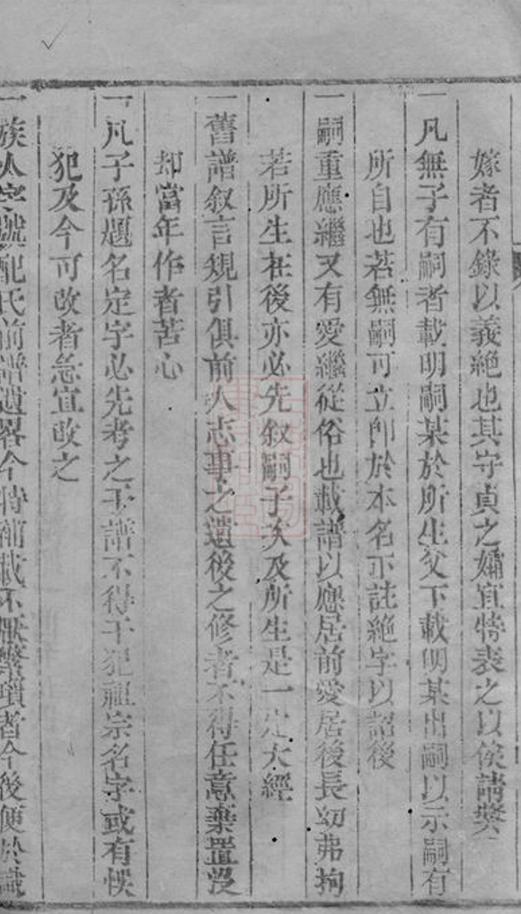 嫁者不錄以義絶也其守貞之孀宜特表之以俟請獎
一凡無子有嗣者載明嗣某於所生父下載明某出嗣以示嗣有
所自也若無嗣可立即於本名下註絶字以詔後
一嗣重應繼又有愛繼從俗也載譜以應居前愛居後長幼弗拘
若所生在後亦必先叙嗣子次及所生是一定大經
一舊譜叙言規引俱前人志事之遺後之修者不得任意棄置沒
却當年作者苦心
一凡子孫題名定字必先考之于譜不得干犯祖宗名字或有悞
犯及今可改者急宜改之
一族人字號配氏前譜遺畧今特補載不厭繁瑣者今後便於識